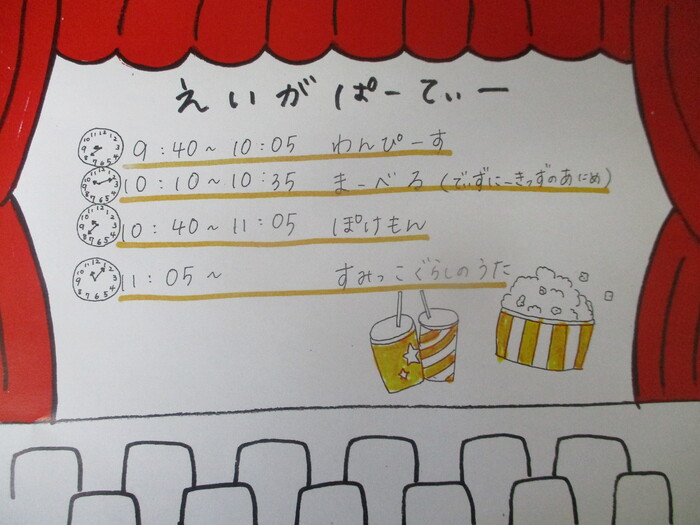 えいがぱーてぃー
9:40～10:05 わんぴーす
10:10～10:35 まーべる(でぃずにーきっずのあにめ)
10:40～11:05 ぽけもん
11:05～ すみっこぐらしのうた